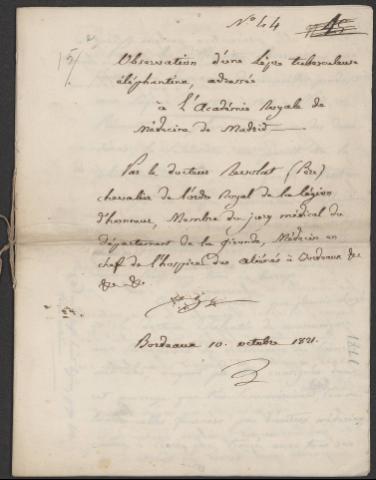 N° 44
15/
Observation d'une Lèpre tuberculeuse
éléphantine, adressée
à L'Académie Royale de
Médecine de Madrid
Par le docteur (Père)
chevalier de l'ordre Royal de la légion
d'honneur, Membre du jury médical du
département de la gironde, Médecin en
chef de l'hospice des aliénés à Bordeaux &c
&c &c
Bordeaux 10. octobre 1821.
1821